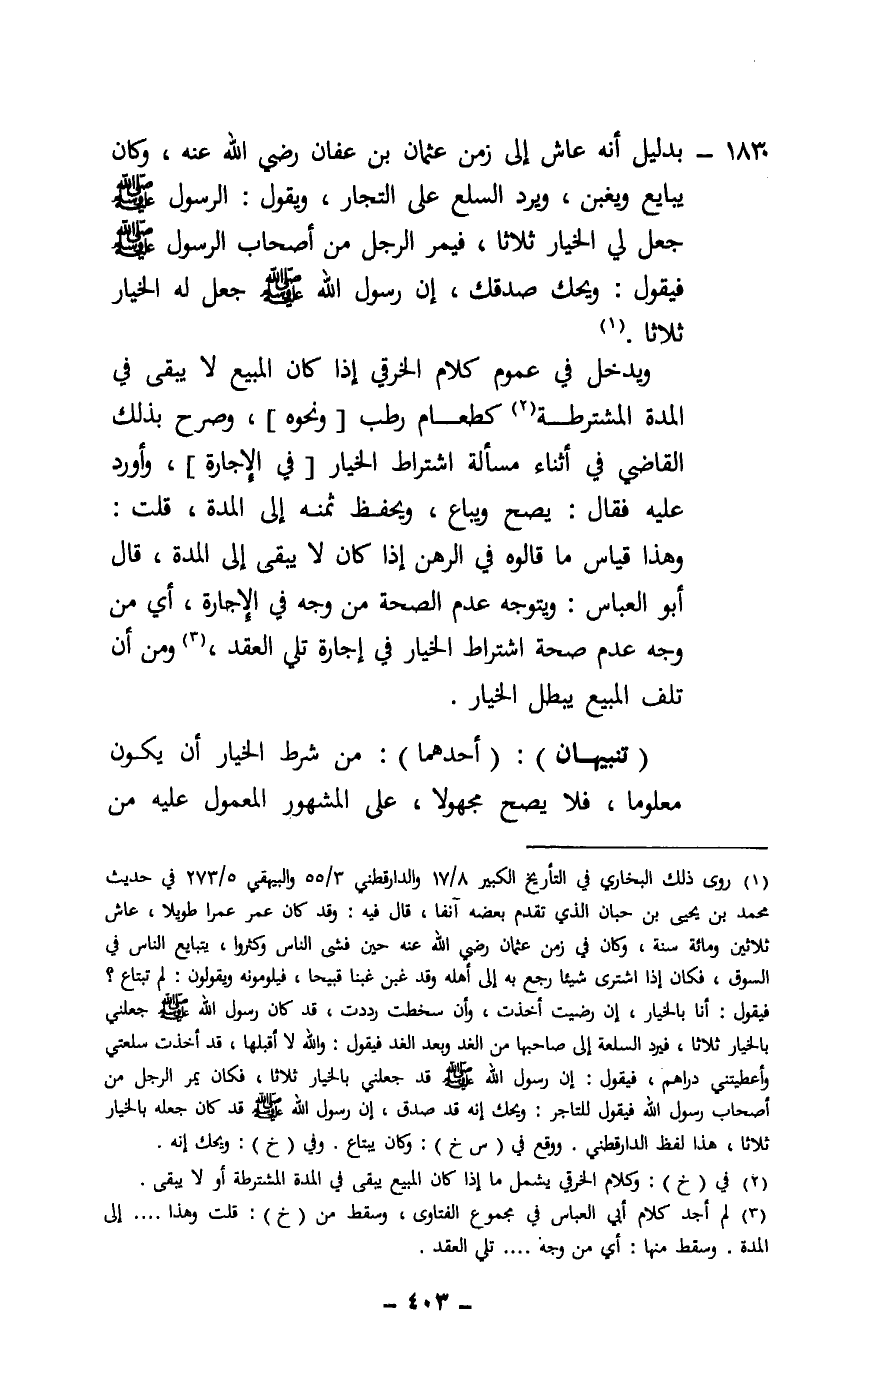 ١٨٣٠ – بدليل أنه عاش إلى زمن عثمان بن عفان رضي الله عنه ، وكان
يبايع ويغبن ، ويرد السلع على التجار ، ويقول : الرسول ﷺ
جعل لي الخيار ثلاثا ، فيمر الرجل من أصحاب الرسول ﷺ
فيقول : ويحك صدقك ، إن رسول الله ﷺ جعل له الخيار
ثلاثا .(١)
ويدخل في عموم كلام الخرقي إذا كان المبيع لا يبقى في
المدة المشترطة(٢) كطعام رطب [ ونحوه ] ، وصرح بذلك
القاضي في أثناء مسألة اشتراط الخيار [ في الإجارة ] ، وأورد
عليه فقال : يصح ويباع ، ويحفظ ثمنه إلى المدة ، قلت :
وهذا قياس ما قالوه في الرهن إذا كان لا يبقى إلى المدة ، قال
أبو العباس : ويتوجه عدم الصحة من وجه في الإجارة ، أي من
وجه عدم صحة اشتراط الخيار في إجارة تلي العقد ،(٣) ومن أن
تلف المبيع يبطل الخيار .
( تنبيهان ) : ( أحدهما ) : من شرط الخيار أن يكون
معلوما ، فلا يصح مجهولا ، على المشهور المعمول عليه من
(١) روى ذلك البخاري في التأريخ الكبير ١٧/٨ والدارقطني ٥٥/٣ والبيهقي ٢٧٣/٥ في حديث
محمد بن يحيى بن حبان الذي تقدم بعضه آنفا ، قال فيه : وقد كان عمر عمرا طويلا ، عاش
ثلاثين ومائة سنة ، وكان في زمن عثمان رضي الله عنه حين فشى الناس وكثروا ، يتبايع الناس في
السوق ، فكان إذا اشترى شيئا رجع به إلى أهله وقد غبن غبنا قبيحا ، فيلومونه ويقولون : لم تبتاع ؟
فيقول : أنا بالخيار ، إن رضيت أخذت ، وأن سخطت رددت ، قد كان رسول الله ﷺ جعلني
بالخيار ثلاثا ، فيرد السلعة إلى صاحبها من الغد وبعد الغد فيقول : والله لا أقبلها ، قد أخذت سلعتي
وأعطيتني دراهم ، فيقول : إن رسول الله ﷺ قد جعلني بالخيار ثلاثا ، فكان يمر الرجل من
أصحاب رسول الله فيقول للتاجر : ويحك إنه قد صدق ، إن رسول الله ﷺ قد كان جعله بالخيار
ثلاثا ، هذا لفظ الدارقطني . ووقع في ( س خ ) : وكان يبتاع . وفي ( خ ) : ويحك إنه .
(٢) في ( خ ) : وكلام الخرقي يشمل ما إذا كان المبيع يبقى في المدة المشترطة أو لا يبقى .
(٣) لم أجد كلام أبي العباس في مجموع الفتاوى ، وسقط من ( خ ) : قلت وهذا .... إلى
المدة . وسقط منها : أي من وجه .... تلي العقد .
– ٤٠٣ –